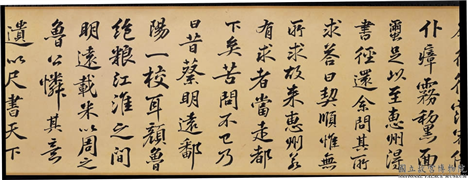 仆瘴霧黧面
繭足以至惠州得
書徑還余問其所
求答曰契順惟無
所求故来惠州若
有求者當走都
下矣苦問不已乃
曰昔蔡明遠鄱
陽一校耳顏魯
絕粮江淮之間
明遠載米以周之
魯公憐其意
遺以尺書天下